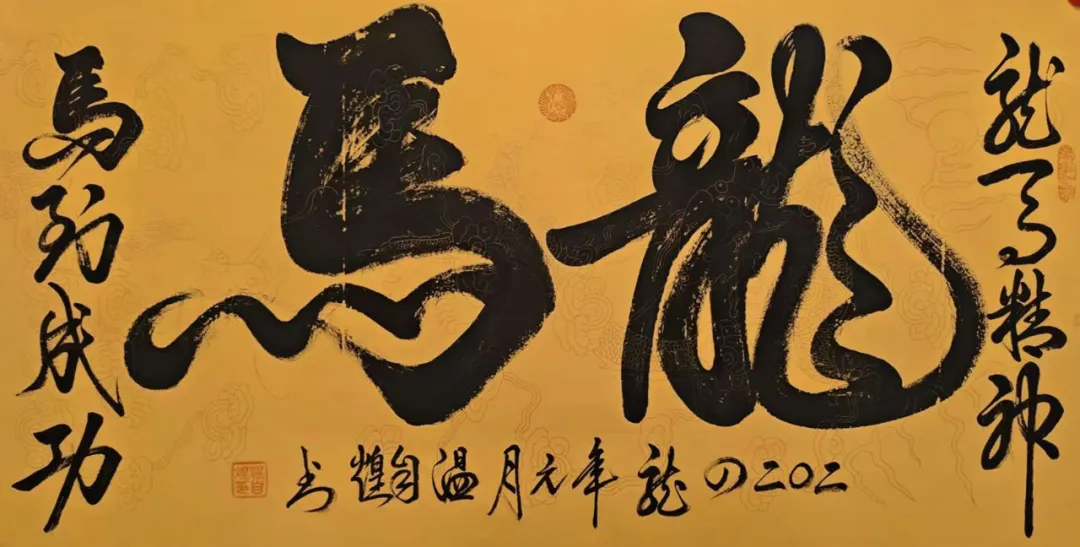 龍馬精神
龍馬
二〇二四龍年元月温自煌书
馬到成功